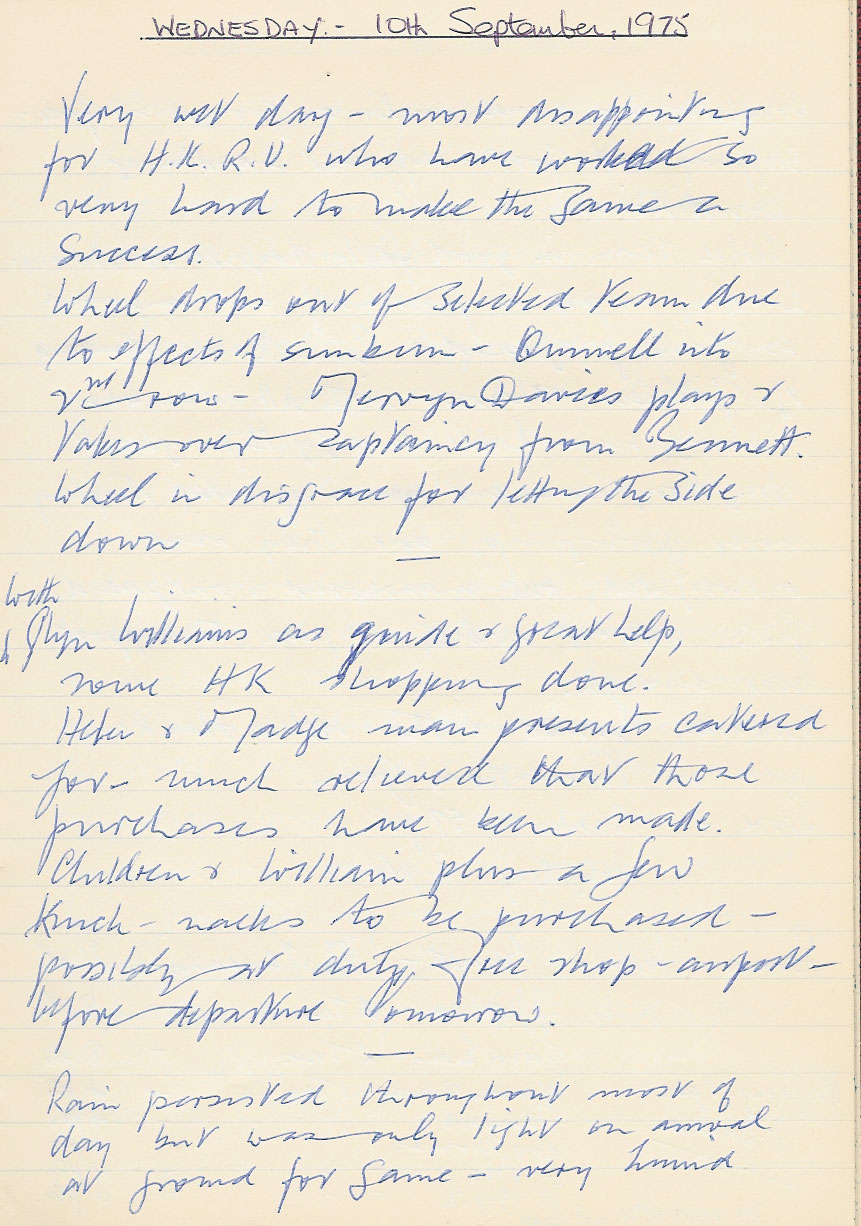 WEDNESDAY. - 10th September, 1975
Very wet day - most disappointing
for H.K.R.U. who have worked so
very hard to make the game a
success.
Wheel drops out of selected team due
to effects of sunburn - Quinnell into
2nd row - Mervyn Davies plays &
takes over captaincy from Bennett.
Wheel in disgrace for letting the side
down
—
With
Glyn Williams as guide & great help,
some HK shopping done.
& Madge main presents catered
for - much relieved that those
purchases have been made.
Children & William plus a few
Knick-nacks to be purchased -
possibly at duty-free shop - airport -
before departure tomorrow.
—
Rain persisted throughout most of
day but was only light on arrival
at ground for game - very humid